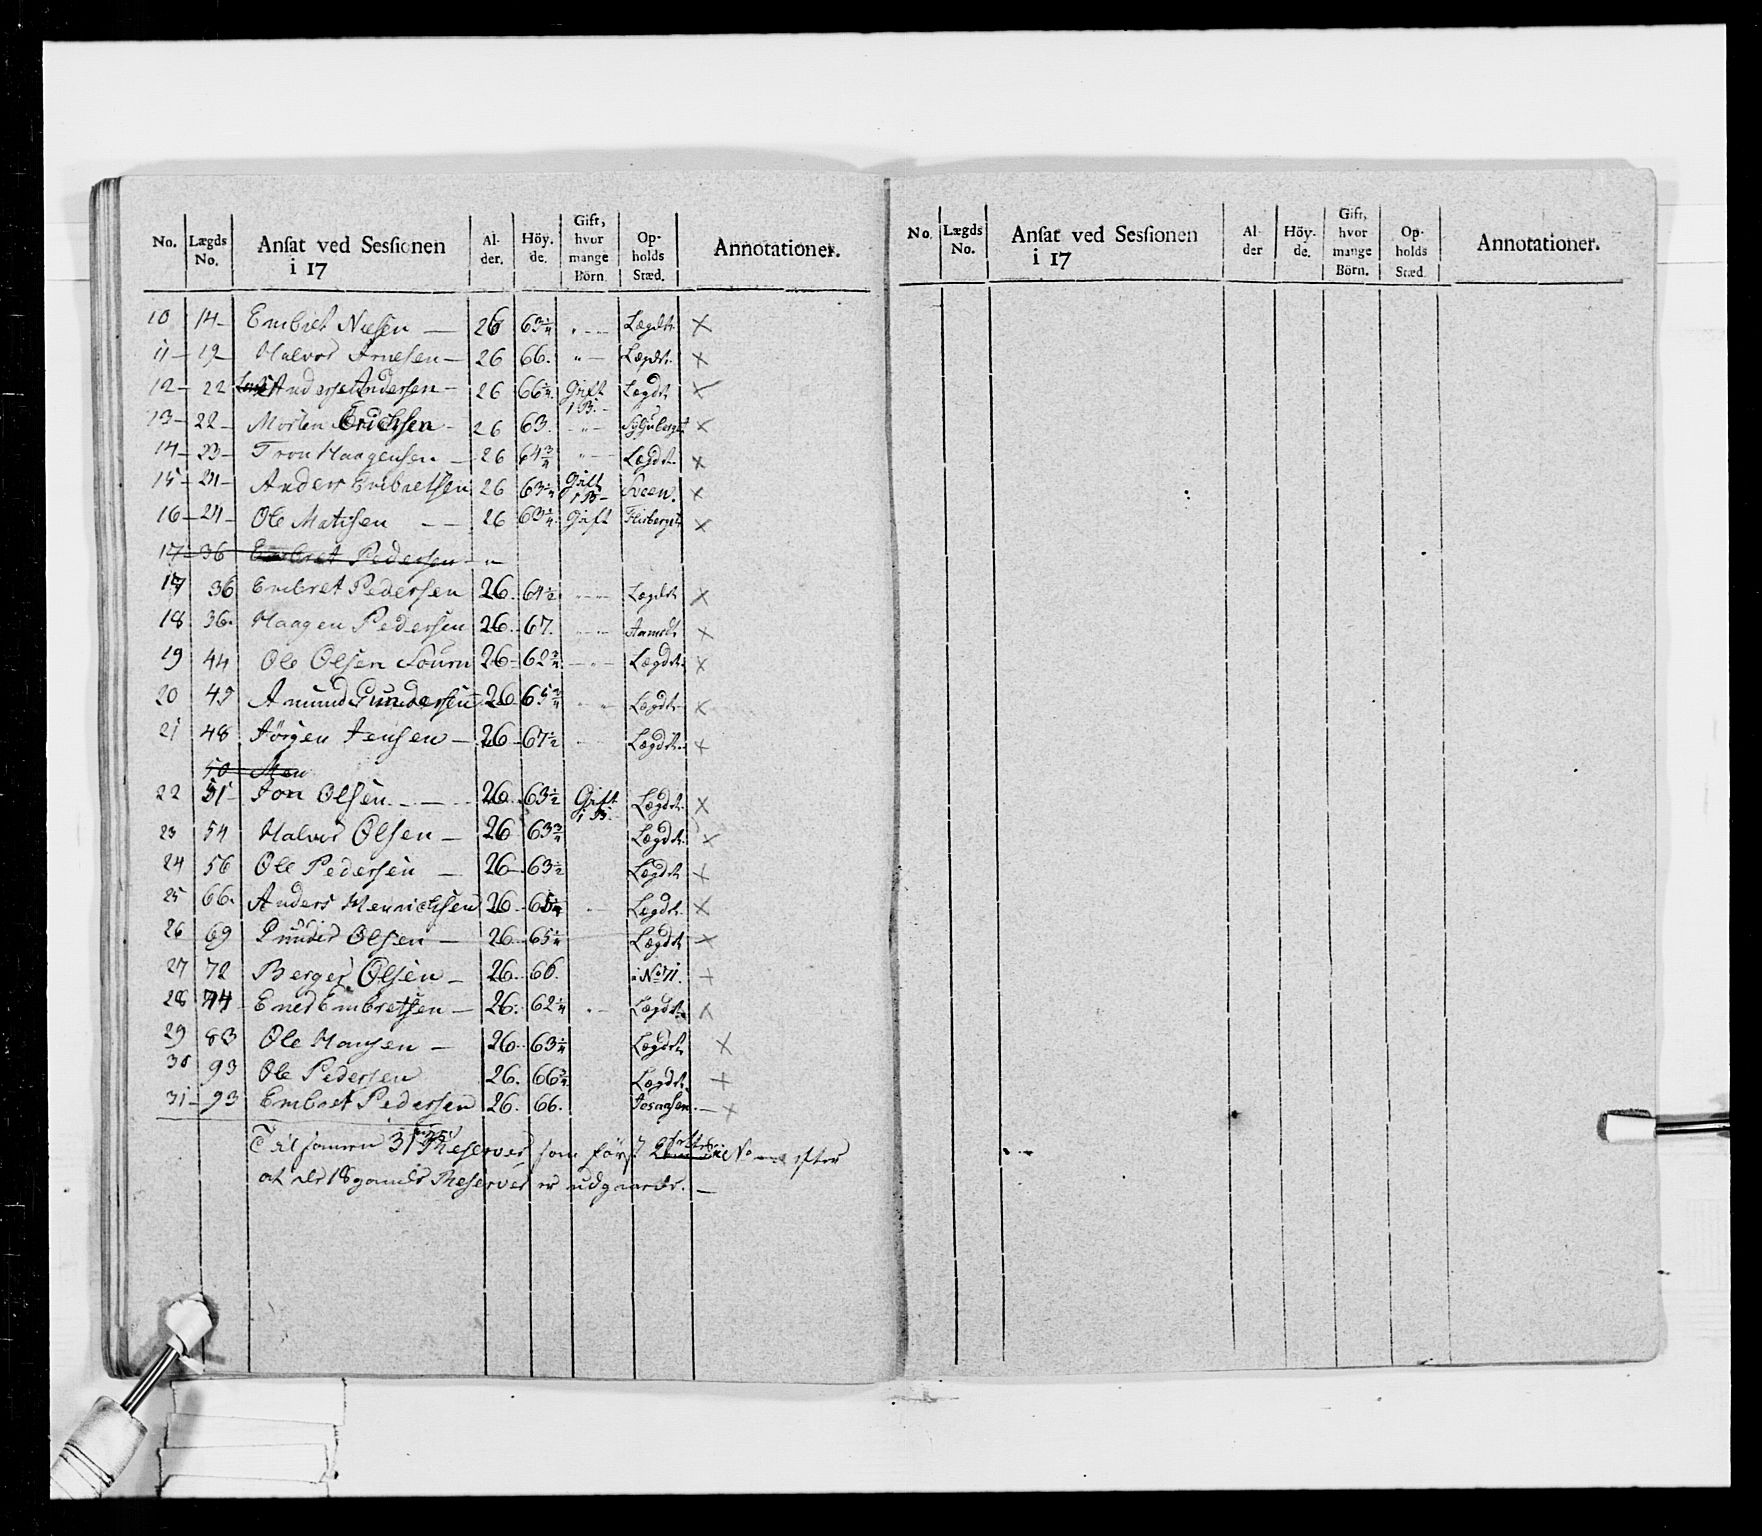 No. Lægds No. Ansat ved Sessionen i 17 Al- der. Höy- de. Gift, hvor mange Börn Op- holds Stæd. Annotationer.
10 14 Embret Nielsen 26 63 1/4 " Lægdt X
11 19 Halvor Arnesen 26 66. " Lægdt. X
12 22 Anders Andersen 26 66 Gift 1 B. Lægdt X
13 22 Morten Erichsen 26 63. " X
14 23 Tron Haagensen 26 64 3/4 " Lægdt X
15 24 Anders Embretsen 26 63 1/4 Gift 1 B Sveen. X
16 24 Ole Matisen 26 63 1/4 Gift Flisberget X
17 36 Embret Pedersen "
17 36 Embret Pedersen 26. 64 1/2 Lægdt X
18 36. Haagen Pedersen 26. 67. X
19 44 Ole Olsen 26 62 3/4 " Lægdt. X
20 47 Amund Gundersen 26 65 3/4 " Lægdt X
21 48 Jörgen Jensen 26 67 1/2 Lægdt. X
50 Men
22 51 Jon Olsen 26 63 1/2 Gift 1 B. Lægdt. X
23 54 Halvor Olsen 26 63 3/4 Lægdt. X
24 56 Ole Pedersen 26 63 1/2 Lægdt X
25 66. Anders Henrichsen 26 65 1/4 Lægdt. X
26 69 Gunder Olsen 26 65 1/4 Lægdt X
27 72 Berger Olsen 26. 66. i No 71. X
28 74 Ener Embretsen 26. 62 1/4 Lægdt. X
29 83 Ole Hansen 26. 63 1/4 Lægdt X
30 93 Ole Pedersen 26. 66 3/4 Lægdt. X
31 93 Embret Pedersen 26. 66. X
Tilsamen 31 Reserver som först efter
at de 18 gamle Reserver er udgaaede.
No. Lægds No. Ansat ved Sessionen i 17 Al- der Höy- de. Gift, hvor mange Börn. Op- holds Stæd. Annotationer.